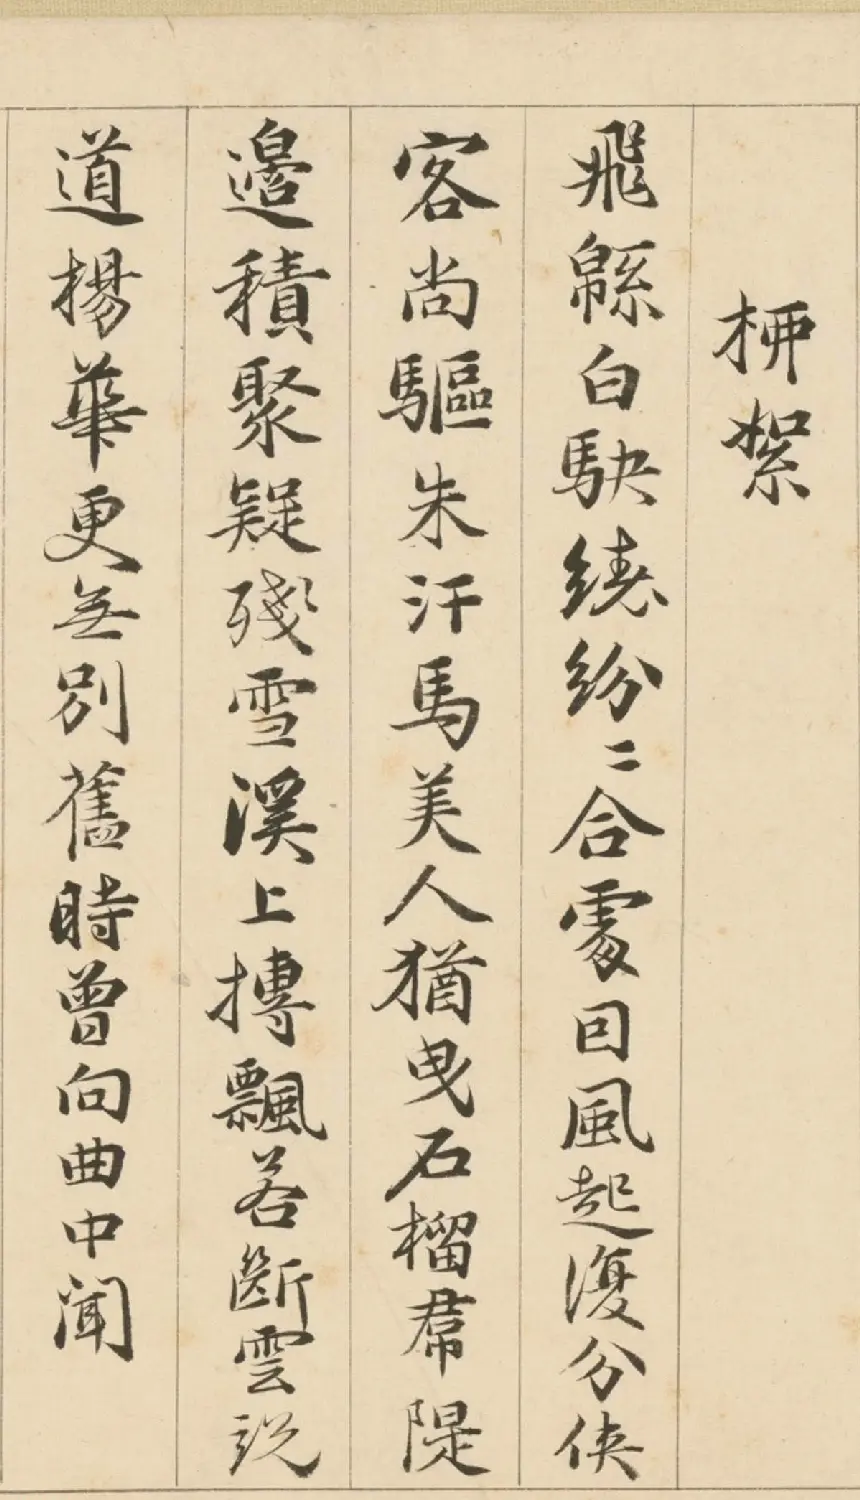 桺絮
飛緜白駃繞紛〻合處回風起復分侠
客尚驅朱汗馬美人猶曳石榴帬隄
邊積聚疑殘雪溪上摶飄若斷雲説
道楊華更無別舊時曾向曲中聞